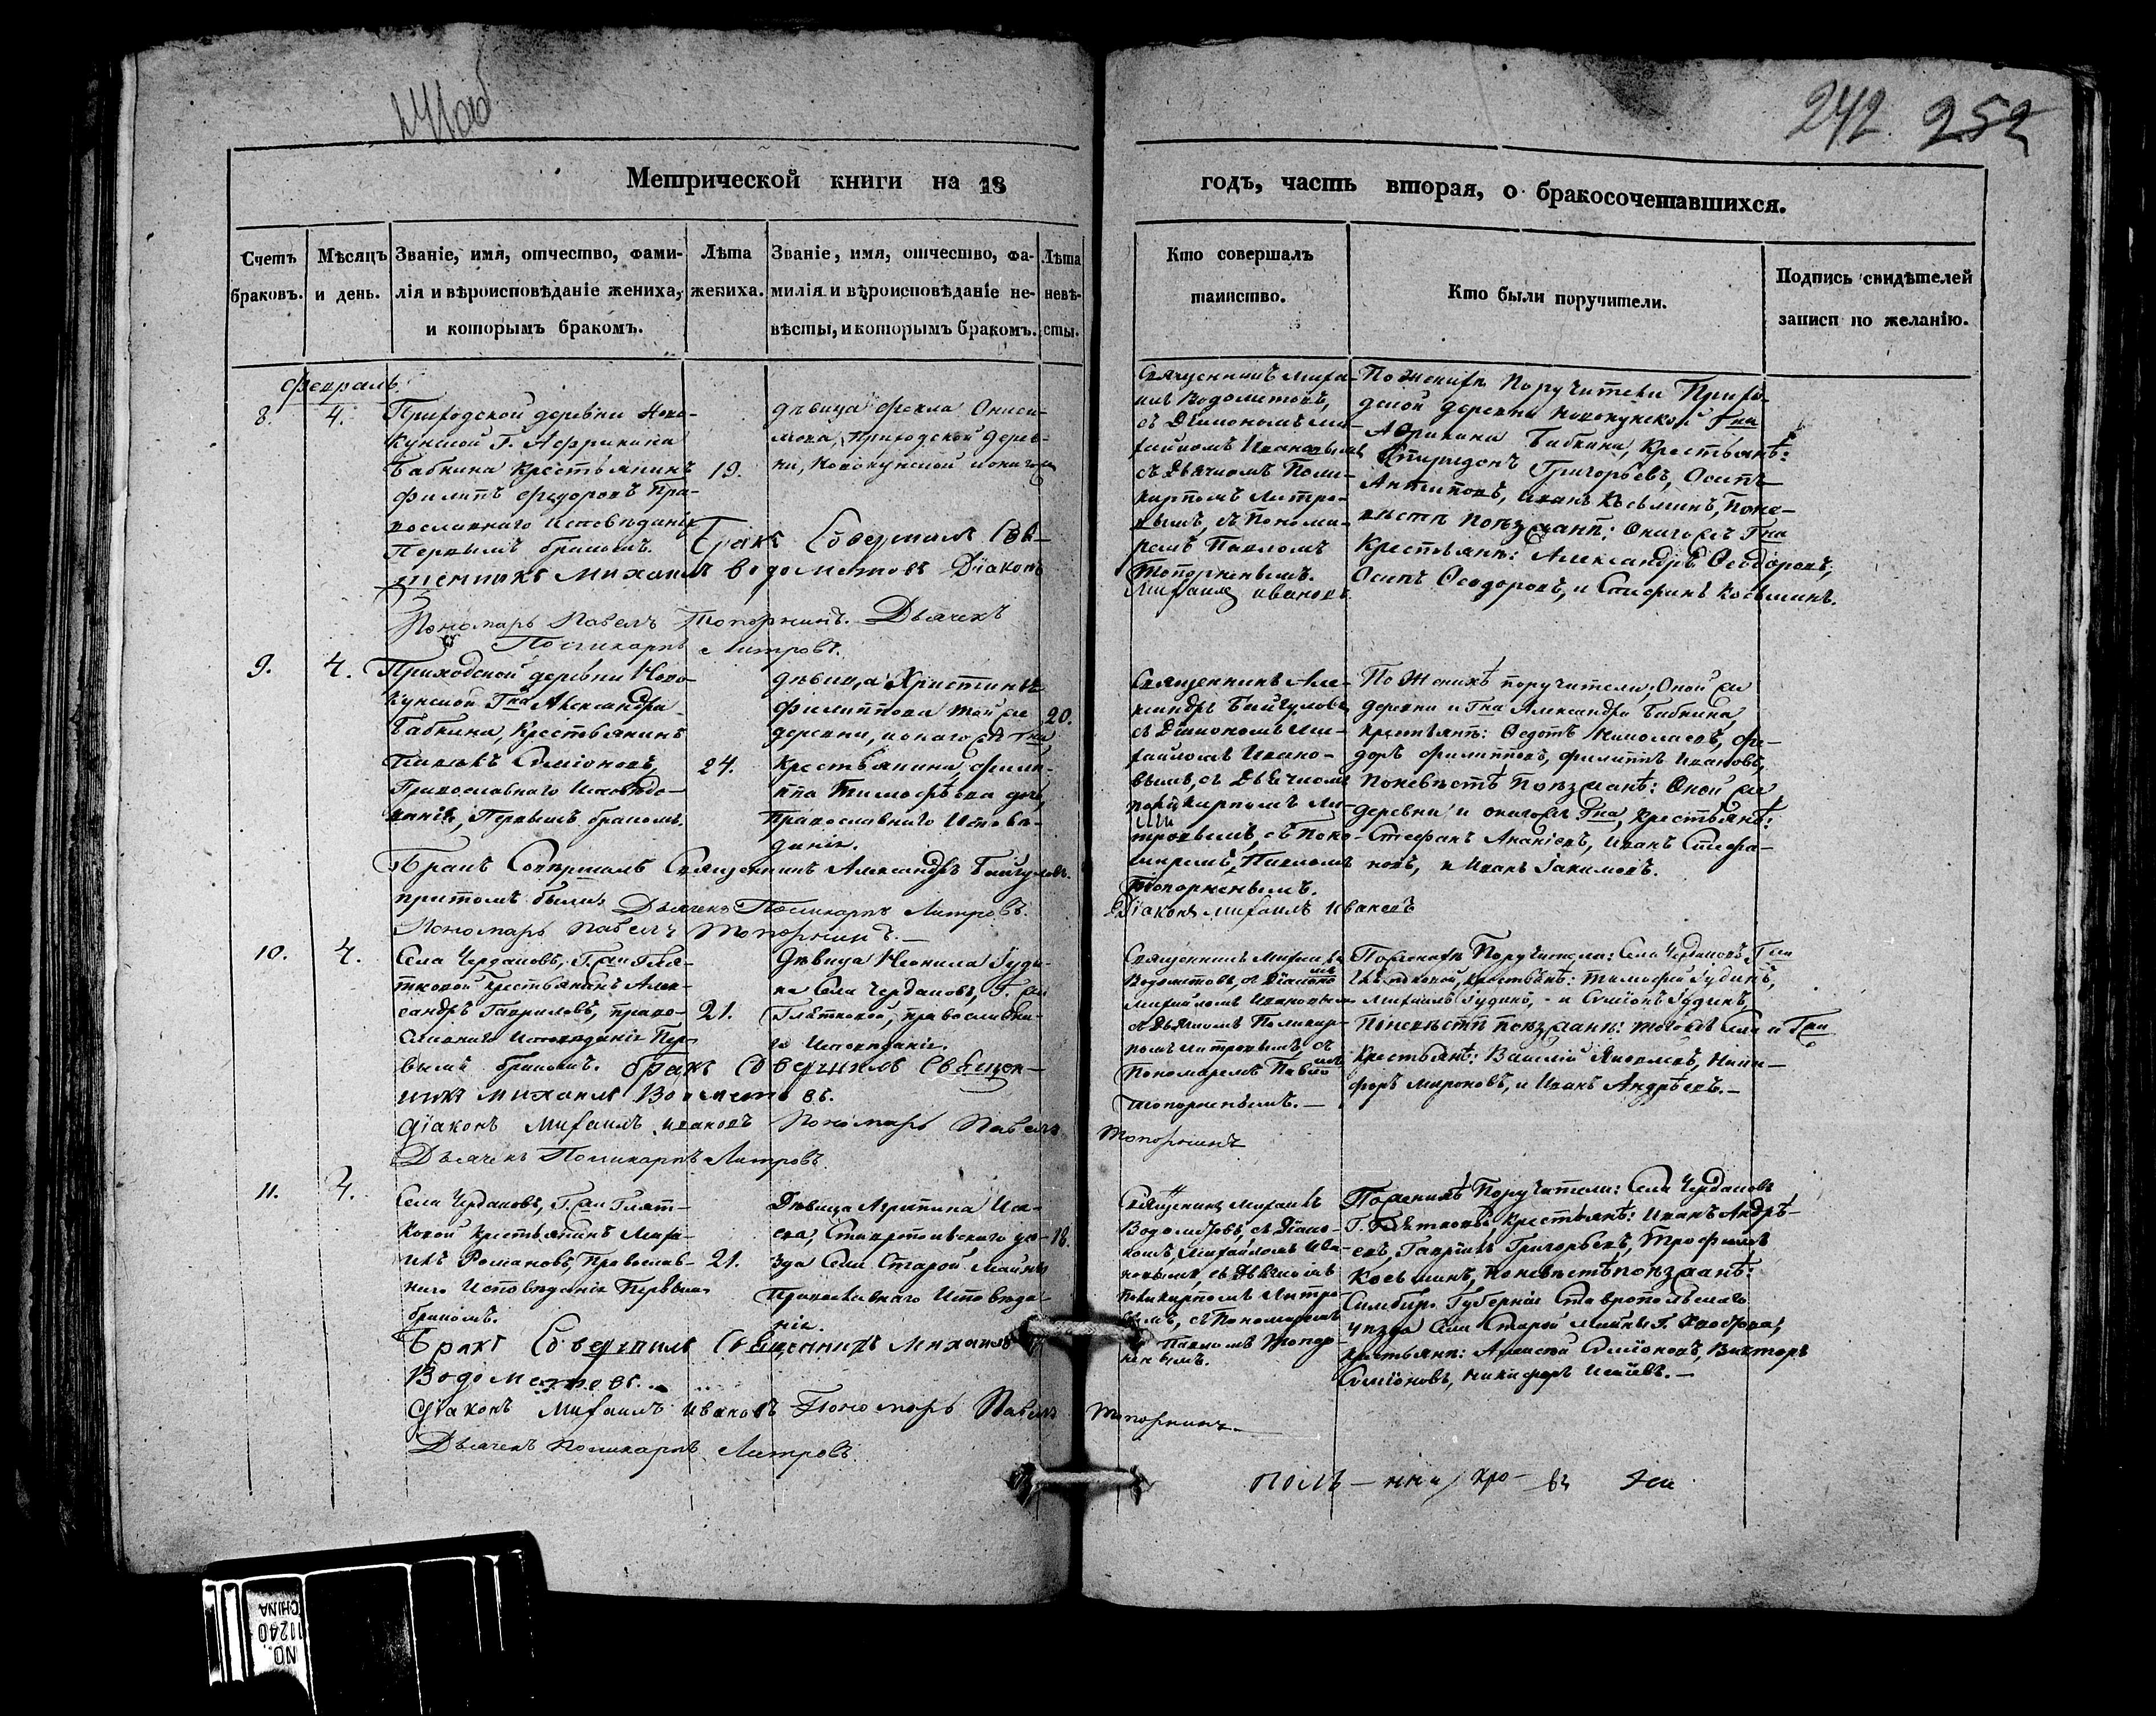 242 252
Метрической книги на 18
годъ, часть вторая, о бракосочетавшихся.
Счетъ браковъ.
Мѣсяцъ и день.
Званіе, имя, отчество, фами-
лія и вѣроисповѣданіе жениха,
и которымъ бракомъ.
Лѣта
жениха.
Званіе, имя, отчество, фа-
милія и вѣроисповѣданіе не-
вѣсты, и которымъ бракомъ.
Лѣта
невѣ-
сты.
Кто совершалъ
таинство.
Кто были поручители.
Подпись свидѣтелей
записи по желанію.
Февраль
8.
4.
Приходской деревни Ново-
кунской Г. Аффрикана
Бабкина крестьянинъ
Филипъ Федоровъ Пра-
вославнаго Исповѣданія
Первымъ бракомъ.
19.
дѣвица Фекла Ониси-
мова, Приходской дерев-
ни, Новокунской и онаго
Священникъ Миха-
илъ Водометовъ,
съ Діакономъ Ми-
хайломъ Ивановымъ
съ Дьячкомъ Поли-
карпомъ Литро-
вымъ, съ Понома-
ремъ Павломъ
Топорнинымъ.
Михаилъ Ивановъ
По Женихѣ Поручители Прихо-
дской деревни Новокунской Гна
Африкана Бабкина, Крестьянѣ:
Спиридонъ Григорьевъ, Осипъ
Антиповъ, Иванъ Косьминъ, Поне-
вѣстѣ Поѣзжанѣ: Онагожъ Гна
Крестьянѣ: Александръ Ѳеодоровъ,
Осипъ Ѳеодоровъ, и Стефанъ Косьминъ.
Бракъ Совершилъ Свя-
щенникъ Михаилъ Водометовъ Діаконъ
Пономарь Павелъ Топорнинъ. Дьячекъ
Поликарпъ Литровъ.
9.
4.
Приходской деревни Ново-
кунской Гна Александра
Бабкина, Крестьянинъ
Симіоновъ,
Православнаго Исповѣда-
ніе, Первымъ бракомъ.
24.
дѣвица Христина
Филиппова той же
деревни, и онагожъ Гна
Крестьянина, Фили-
ппа Тимофѣева дочь,
Православнаго Исповѣ-
даніе.
20.
Священникъ Але-
ксандръ Байгуловъ
съ Діакономъ Ми-
хайломъ Ивано-
вымъ, съ Дьячкомъ
Поликарпомъ Ли-
тровымъ, съ Поно-
маремъ, Павломъ
Топорнинымъ.
Діаконъ Михаилъ Ивановъ
По Женихѣ поручители; Оной же
деревни и Гна Александра Бабкина,
крестьянѣ: Федотъ Николаевъ, Фе-
доръ Филипповъ, Филиппъ Ивановъ,
Поневѣстѣ Поѣзжанѣ: Оной же
деревни и онагожъ Гна, крестьянѣ:
Стефанъ Ананіевъ, Иванъ Стефа-
новъ, и Иванъ Іакимовъ.
Бракъ Совершалъ Священникъ Александръ Байгуловъ.
притомъ были: Дьячекъ Поликарпъ Литровъ.
Пономарь Павелъ Топорнинъ.
10.
4.
Села Чердаковъ, Г. жи Гля-
тковой Крестьянинъ Алек-
сандръ Гавриловъ, право-
славнаго Исповѣданіе Пер-
вымъ бракомъ.
21.
Дѣвица Неонила Гуди-
на Села Чердаковъ, Г. жи
Глятковой, православна-
го Исповѣданіе.
Священникъ Михаилъ
Водометовъ, съ Діакономъ
Михайломъ Ивановымъ
съ Дьячкомъ Поликар-
помъ Литровымъ, съ
Пономаремъ Павломъ
Топорнинымъ.
Топорнинъ
Поженихѣ Поручители: Села Чердаковъ Г жи
Глятковой, крестьянѣ: Тимофей Гудинъ,
Михаилъ Гудинъ, и Симіонъ Гудинъ,
Поневѣстѣ поѣзжанѣ: тогожъ Села и Гжи
крестьянѣ: Василій Яковлевъ, Ники-
форъ Мироновъ, и Иванъ Андрѣевъ.
бракъ Совершилъ Священ-
никъ Михаилъ Водометовъ.
Діаконъ Михаилъ Ивановъ Пономарь Павелъ
Дьячекъ Поликарпъ Литровъ
11.
4.
Села Чердаковъ, Г. жи Глят-
ковой Крестьянинъ Миха-
илъ Романовъ, Православ-
наго Исповѣданія Первымъ
бракомъ.
21.
Дѣвица Агрипина Иса-
ева, Ставропольскаго уѣ-
зда Села Старой Майны
Православнаго Исповѣда-
ніе.
18.
Священникъ Михаилъ
Водометовъ, съ Діако-
номъ, Михайломъ Ива-
новымъ съ Дьячкомъ
Поликарпомъ Литро-
вымъ, съ Пономаремъ
Павломъ Топор-
нинымъ.
Поженихѣ Поручители: Села Чердаковъ
Г. Глятковой крестьянѣ: Иванъ Андрѣ-
евъ, Гавріилъ Григорьевъ, Трофимъ
Косьминъ, Поневѣстѣ поѣзжанѣ:
Симбир. Губерніи Ставропольскаго
уѣзда Села Старой Майны Г.
крестьянѣ: Алексѣй Симіоновъ, Викторъ
Симіоновъ, Никифоръ Исаевъ.
Бракъ Совершилъ Священникъ Михаилъ
Водометовъ.
Діаконъ Михаилъ Ивановъ Пономарь Павелъ
Топорнинъ
Дьячекъ Поликарпъ Литровъ
NO.
11240
CHINA